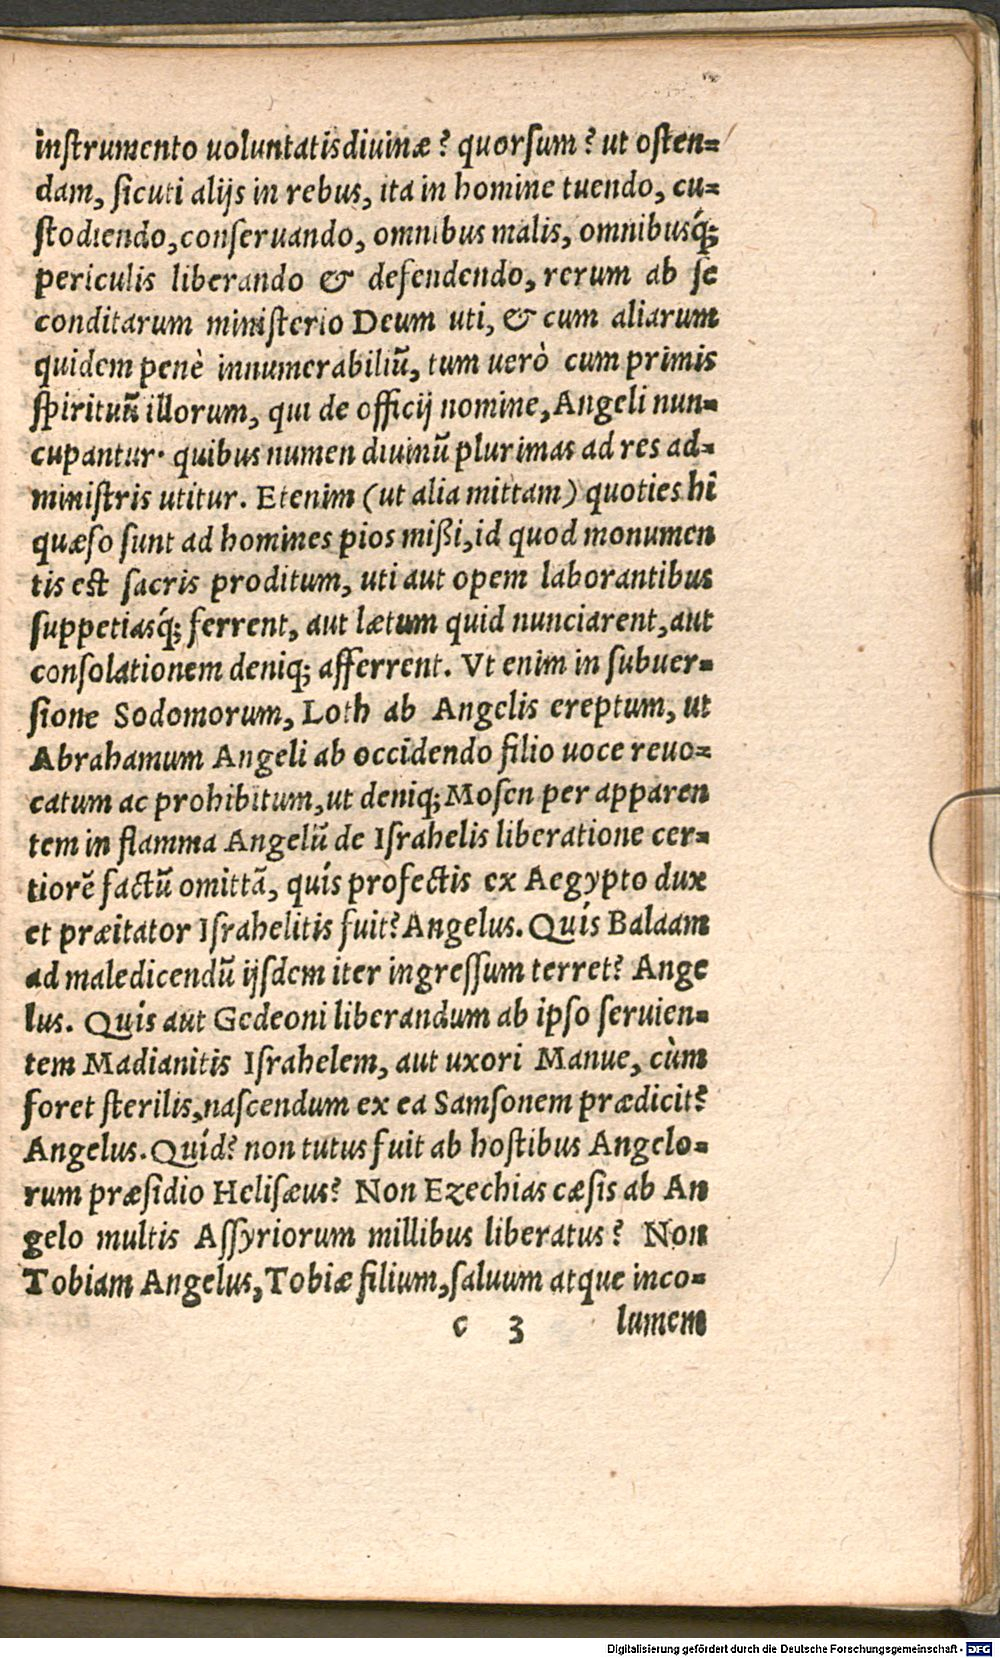 inſtrumento uoluntatis diuinæ? quorſum? ut oſten=
dam, ſicuti alijs in rebus, ita in homine tuendo, cu=
ſtodiendo, conſeruando, omnibus malis, omnibusq́;
periculis liberando & defendendo, rerum ab ſe
conditarum miniſterio Deum uti, & cum aliarum
quidem penè innumerabiliũ, tum uerò cum primis
ſpirituũ illorum, qui de officij nomine, Angeli nun=
cupantur. quibus numen diuinũ plurimas ad res ad=
miniſtris utitur. Etenim (ut alia mittam) quoties hi
quæſo ſunt ad homines pios mißi, id quod monumen
tis eſt ſacris proditum, uti aut opem laborantibus
ſuppetiasq́; ferrent, aut lætum quid nunciarent, aut
conſolationem deniq; afferrent. Vt enim in ſubuer=
ſione Sodomorum, Loth ab Angelis ereptum, ut
Abrahamum Angeli ab occidendo filio uoce reuo=
catum ac prohibitum, ut deniq; Moſen per apparen
tem in flamma Angelũ de Iſrahelis liberatione cer=
tiorẽ factũ omittã, quis profectis ex Aegypto dux
et præitator Iſrahelitis fuit? Angelus. Quis Balaam
ad maledicendũ ijſdem iter ingreſſum terret? Ange
lus. Quis aut Gedeoni liberandum ab ipſo ſeruien=
tem Madianitis Iſrahelem, aut uxori Manue, cùm
foret ſterilis, naſcendum ex ea Samſonem prædicit?
Angelus. Quid? non tutus fuit ab hoſtibus Angelo=
rum præſidio Heliſæus? Non Ezechias cæſis ab An
gelo multis Aſſyriorum millibus liberatus? Non
Tobiam Angelus, Tobiæ filium, ſaluum atque inco=
c 3 lumem
Digitalisierung gefördert durch die Deutsche Forschungsgemeinschaft - DFG